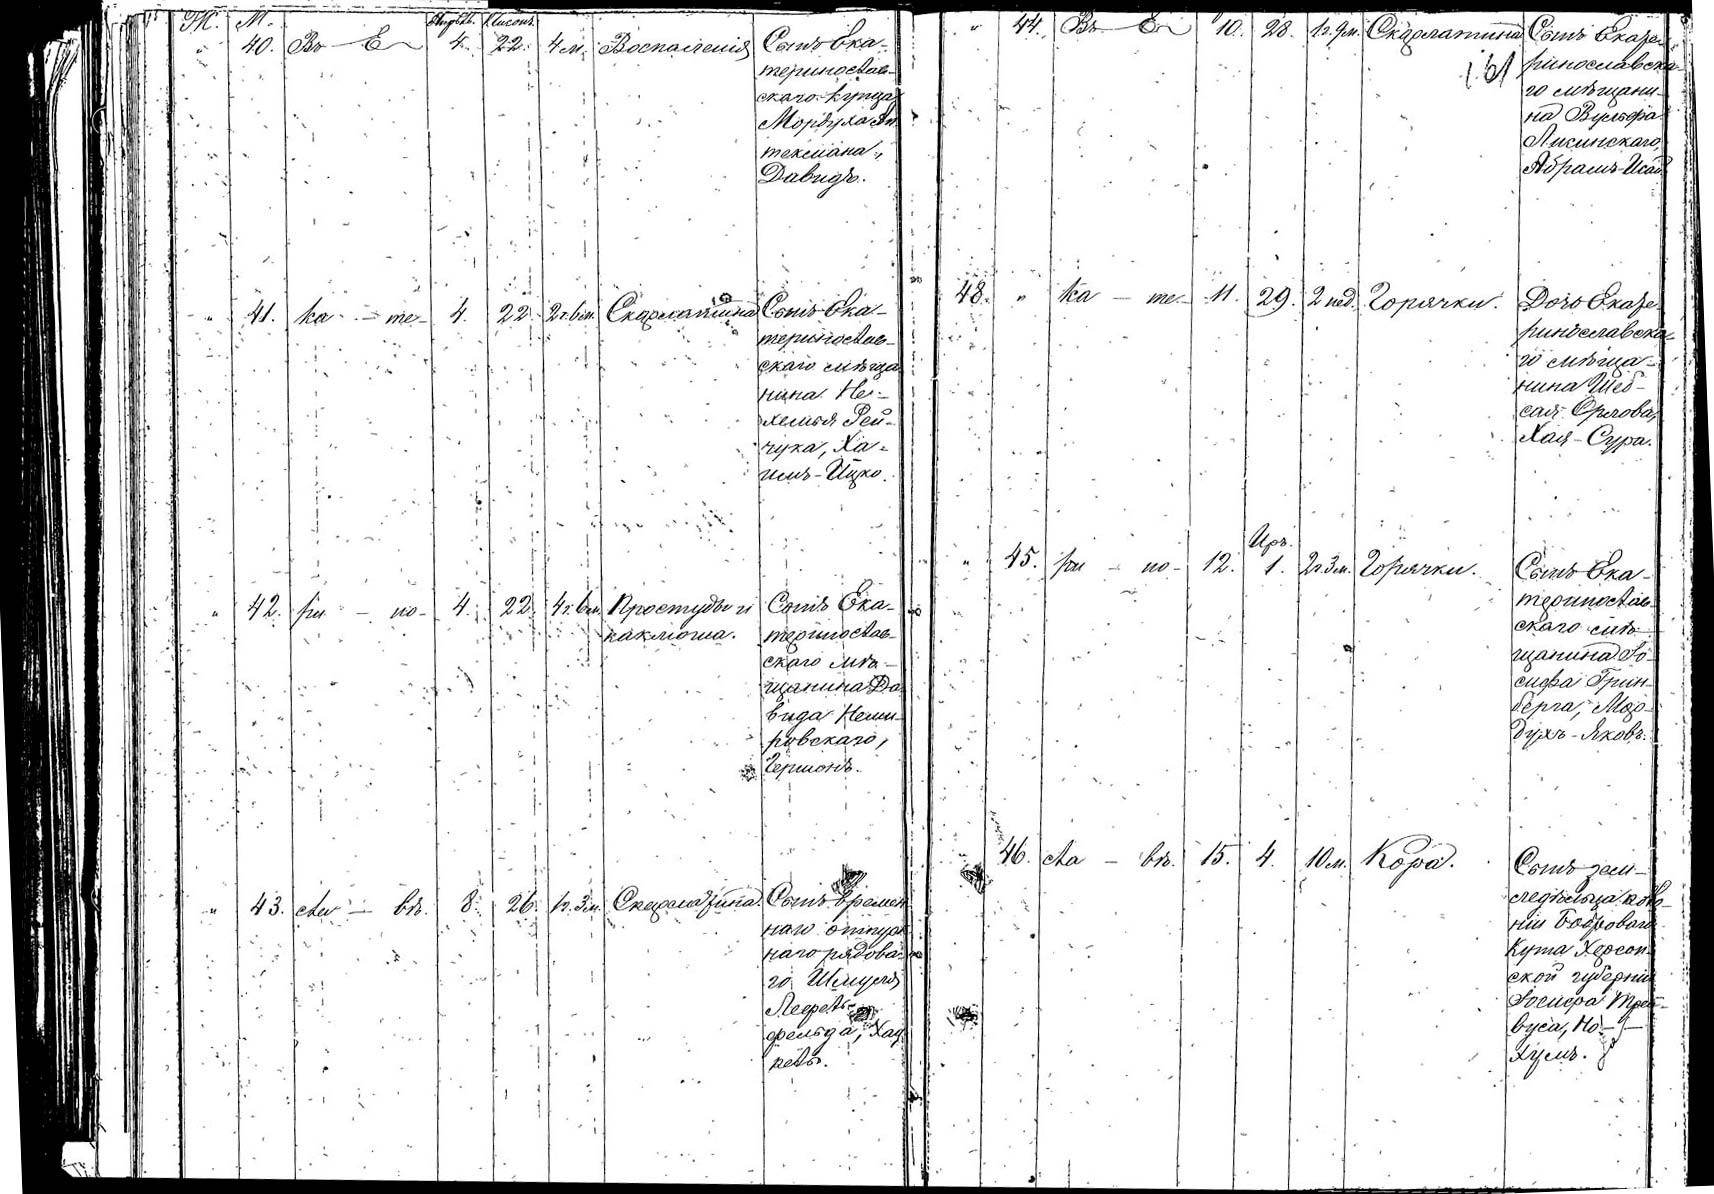 Ж. М. Апрѣль. Нисонъ.
" 40. Въ Е 4. 22. 4 м. Воспаленія Сынъ Ека-
теринослав-
скаго купца
Мордуха
Давидъ.
" 41. ка - те- 4. 22 2 г. 6 м. Скарлатина Сынъ Ека-
теринослав-
скаго мѣща
нина Не-
хемья Рей-
чука, Ха-
имъ-Ицко.
" 42. ри - но- 4. 22. 4 г. 6 м. Простуды и Сынъ Ека-
коклюша. теринослав-
скаго мѣ-
щанина Да
вида Неми-
ровскаго,
Гершонъ.
" 43. сла - вѣ. 8. 26. 1 г. 3 м. Скарлатина. Сынъ времен
наго отпуск
наго рядова-
го Шмуля
фельда,
" 44. Въ Е 10. 28. 1 г. 9 м. Скарлатина Сынъ Екате-
ринославска-
го мѣщани-
на Вульфа
Лисинскаго,
Абрамъ-Исай
48. " ка - те- 11. 29. 2 нед. Горячки. Дочь Екате-
ринославска-
го мѣща-
нина Шеб-
сая Орлова,
Хая-Сура.
Иръ.
" 45. ри - но- 12. 1. 2 г. 3 м. Горячки. Сынъ Ека-
теринослав-
скаго мѣ-
щанина Іо-
сифа Грин-
берга, Мор-
духъ-Яковъ.
46. сла - вѣ. 15. 4. 10 м. Кора. Сынъ зем-
ледѣльца коло-
ніи Боброваго
Кута Херсон-
ской губерніи
Іосифа Трей-
вуса, Но-
хумъ.